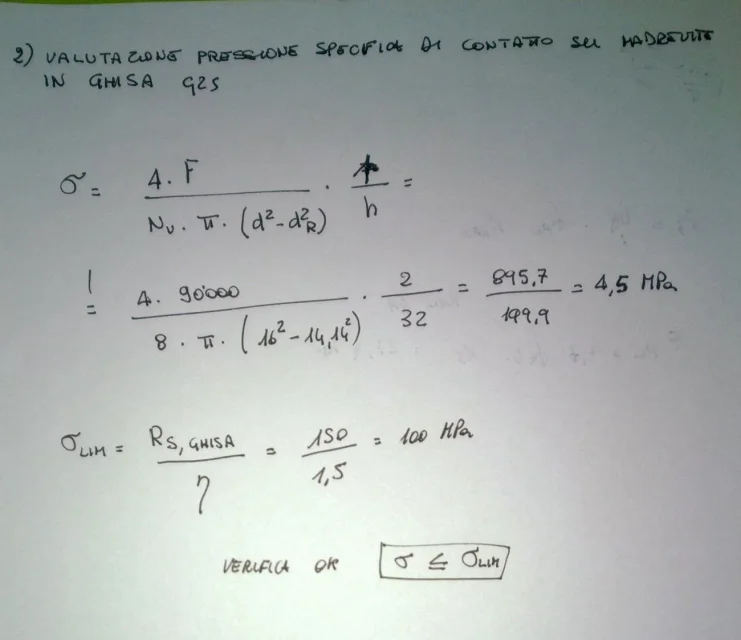 2) VALUTAZIONE PRESSIONE SPECIFICA DI CONTATTO SU MADREVITE
IN GHISA G25
σ = 4·F / (Nv · π · (d² - d²R)) · p/h =
= 4 · 90'000 / (8 · π · (16² - 14,14²)) · 2/32 = 895,7 / 199,9 = 4,5 MPa
σLIM = RS,GHISA / η = 150 / 1,5 = 100 MPa
VERIFICA OK σ ≤ σLIM